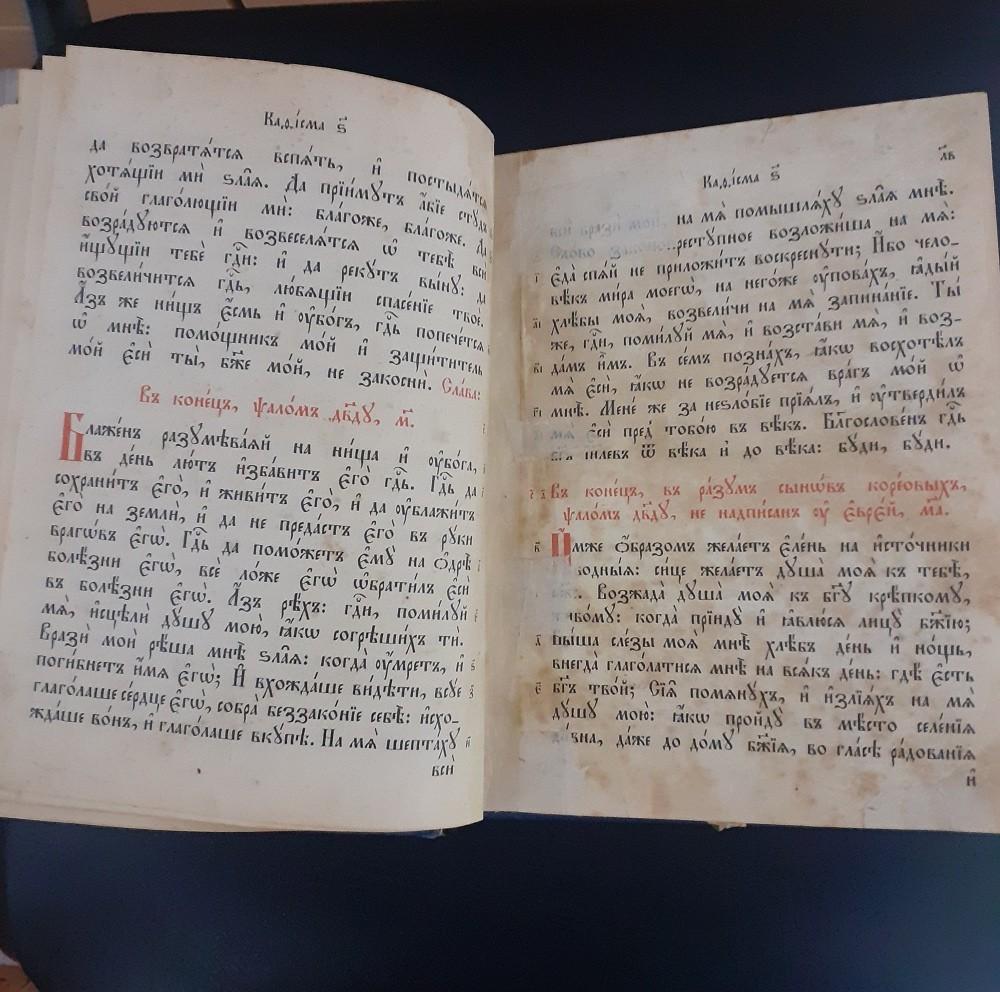 Каѳі́сма ѕ҃
да возвратѧ́тсѧ вспѧ́ть, и҆ постыдѧ́тсѧ
хотѧ́щїи мѝ ѕла̑ѧ. Да прїи́мутъ а҆́бїе стꙋ́дъ
сво́й глаго́лющїи мѝ: бла́гоже, бла́гоже. Да
возра́дꙋютсѧ и҆ возвеселѧ́тсѧ ѡ҆ тебѣ̀ всѝ
и҆́щꙋщїи тебѐ гдⷭ҇и: и҆ да рекꙋ́тъ вы́нꙋ: да
возвели́читсѧ гдⷭ҇ь, лю́бѧщїи спасе́нїе твоѐ.
А҆́зъ же ни́щъ є҆́смь и҆ ᲂу҆бо́гъ, гдⷭ҇ь попече́тсѧ
ѡ҆ мнѣ̀: помо́щникъ мо́й и҆ защи́титель
мо́й є҆сѝ ты̀, бж҃е мо́й, не закоснѝ. Сла́ва:
Въ коне́цъ, ѱало́мъ дв҃дꙋ, м҃.
Бла́женъ разꙋмѣва́ѧй на ни́ща и҆ ᲂу҆бо́га,
въ де́нь лю́тъ и҆зба́витъ є҆го̀ гдⷭ҇ь. Гдⷭ҇ь да
сохрани́тъ є҆го̀, и҆ живи́тъ є҆го̀, и҆ да ᲂу҆блажи́тъ
є҆го̀ на землѝ, и҆ да не преда́стъ є҆го̀ въ рꙋ́ки
враго́въ є҆гѡ̀. Гдⷭ҇ь да помо́жетъ є҆мꙋ̀ на ѻ҆дрѣ̀
болѣ́зни є҆гѡ̀, всѐ ло́же є҆гѡ̀ ѡ҆брати́лъ є҆сѝ
въ болѣ́зни є҆гѡ̀. А҆́зъ рѣ́хъ: гдⷭ҇и, поми́лꙋй
мѧ̀, и҆сцѣлѝ дꙋ́шꙋ мою̀, ꙗ҆́кѡ согрѣши́хъ тѝ.
Вразѝ моѝ рѣ́ша мнѣ̀ ѕла̑ѧ: когда̀ ᲂу҆́мретъ, и҆
поги́бнетъ и҆́мѧ є҆гѡ̀; И҆ вхожда́ше ви́дѣти, всꙋ́е
глаго́лаше се́рдце є҆гѡ̀, собра̀ беззако́нїе себѣ̀: и҆схо-
жда́ше во́нъ, и҆ глаго́лаше вкꙋ́пѣ. На мѧ̀ шепта́хꙋ
всѝ
л҃в
Каѳі́сма ѕ҃
всѝ вразѝ моѝ, на мѧ̀ помышлѧ́хꙋ ѕла̑ѧ мнѣ̀.
Сло́во рестꙋ́пное возложи́ша на мѧ̀:
є҆да̀ спѧ́й не приложи́тъ воскреснꙋ́ти; И҆́бо чело-
вѣ́къ ми́ра моегѡ̀, на него́же ᲂу҆пова́хъ, ꙗ҆ды́й
хлѣ́бы моѧ̑, возвели́чи на мѧ̀ запина́нїе. Ты́
же, гдⷭ҇и, поми́лꙋй мѧ̀, и҆ возста́ви мѧ̀, и҆ воз-
да́мъ и҆̀мъ. Въ се́мъ позна́хъ, ꙗ҆́кѡ восхотѣ́лъ
мѧ̀ є҆сѝ, ꙗ҆́кѡ не возра́дꙋетсѧ вра́гъ мо́й ѡ҆
мнѣ̀. Мене́ же за неѕло́бїе прїѧ́лъ, и҆ ᲂу҆тверди́лъ
мѧ̀ є҆сѝ пред̾ тобо́ю въ вѣ́къ. Блг҃ослове́нъ гдⷭ҇ь
и҃левъ ѿ вѣ́ка и҆ до вѣ́ка: бꙋ́ди, бꙋ́ди.
Въ коне́цъ, въ ра́зꙋмъ сынѡ́въ коре́овыхъ,
ѱало́мъ дв҃дꙋ, не надпи́санъ ᲂу҆ є҆вре́й, м҃а.
И҆́мже ѻ҆́бразомъ жела́етъ є҆ле́нь на и҆сто́чники
во́дныѧ: си́це жела́етъ дꙋша̀ моѧ̀ къ тебѣ̀,
Возжада̀ дꙋша̀ моѧ̀ къ бг҃ꙋ крѣ́пкомꙋ,
живо́мꙋ: когда̀ прїидꙋ̀ и҆ ꙗ҆влю́сѧ лицꙋ̀ бж҃їю;
бы́ша сле́зы моѧ̑ мнѣ̀ хлѣ́бъ де́нь и҆ но́щь,
внегда̀ глаго́латисѧ мнѣ̀ на всѧ́къ де́нь: гдѣ̀ є҆́сть
бг҃ъ тво́й; Сїѧ̑ помѧнꙋ́хъ, и҆ и҆злїѧ́хъ на мѧ̀
дꙋ́шꙋ мою̀: ꙗ҆́кѡ пройдꙋ̀ въ мѣ́сто селе́нїѧ
ди́вна, да́же до до́мꙋ бж҃їѧ, во гла́сѣ ра́дованїѧ
и҆